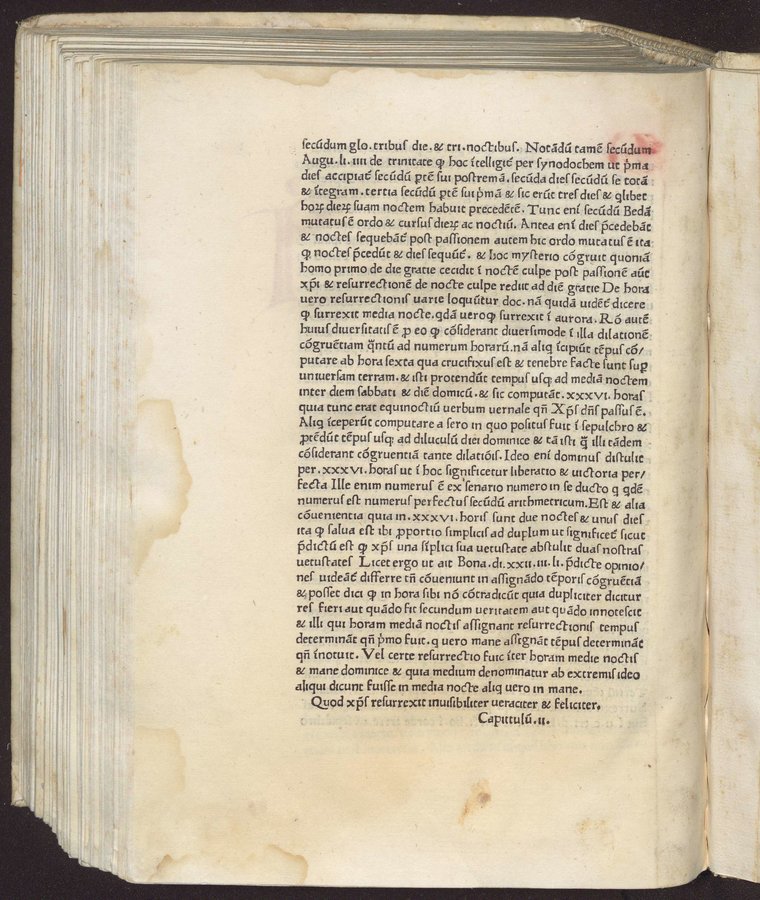 secūdum glo. tribus die. & tri. noctibus. Notādū tamē secūdum
Augu. li. iiii de trinitate ꝙ hoc ītelligit᷑ per synodochem ut p̄ma
dies accipiat᷑ secūdū ꝑtē sui postremā. secūda dies secūdū se totā
& ītegram. tertia secūdū ꝑtē sui p̄mā & sic erūt tres dies & q̄libet
horꝝ dierꝝ suam noctem habuit precedētē. Tunc enī secūdū Bedā
mutatus ē ordo & cursus dierꝝ ac noctiū. Antea enī dies p̄cedebāt
& noctes sequebāt᷑ post passionem autem hic ordo mutatus ē ita
ꝙ noctes p̄cedūt & dies sequūt᷑. & hoc mysterio cōgruit quoniā
homo primo de die gratie cecidit ī noctē culpe post passionē aūt
xp̄i & resurrectionē de nocte culpe rediit ad diē gratie De hora
uero resurrectionis uarie loquūtur doc. nā quidā uidēt᷑ dicere
ꝙ surrexit media nocte. qdā uero ꝙ surrexit ī aurora. Rō autē
huius diuersitatis ē ꝓ eo ꝙ cōsiderant diuersimode ī illa dilationē
cōgruētiam q̄ntū ad numerum horarū. nā aliq īcipiūt tēpus cō/
putare ab hora sexta qua crucifixus est & tenebre facte sunt suꝑ
uniuersam terram. & isti protendūt tempus usqꝫ ad mediā noctem
inter diem sabbati & diē domicū. & sic computāt. xxxvi. horas
quia tunc erat equinoctiū uerbum uernale qn̄ Xp̄s dn̄s passus ē.
Aliq īceperūt computare a sero in quo positus fuit ī sepulchro &
ꝓtēdūt tēpus usqꝫ ad diluculū diei dominice & tā isti q̄ illi tādem
cōsiderant cōgruentiā tante dilatiōis. Ideo enī dominus distulit
per. xxxvi. horas ut ī hoc significetur liberatio & uictoria per/
fecta Ille enim numerus ē ex senario numero in se ducto q qdē
numerus est numerus perfectus secūdū arithmetricum. Est & alia
cōuenientia quia in. xxxvi. horis sunt due noctes & unus dies
ita ꝙ salua est ibi ꝓportio simplicis ad duplum ut significet᷑ sicut
p̄dictū est ꝙ xp̄s una sīplici sua uetustate abstulit duas nostras
uetustates Licet ergo ut ait Bona. di. xxii. iii. li. p̄dicte opinio/
nes uideāt᷑ differre tn̄ cōueniunt in assignādo tēporis cōgruētiā
& posset dici ꝙ in hora sibi nō cōtradicūt quia dupliciter dicitur
res fieri aut quādo fit secundum ueritatem aut quādo innotescit
& illi qui horam mediā noctis assignant resurrectionis tempus
determināt qn̄ p̄mo fuit. q uero mane assignāt tēpus determināt
qn̄ īnotuit. Vel certe resurrectio fuit īter horam medie noctis
& mane dominice & quia medium denominatur ab extremis ideo
aliqui dicunt fuisse in media nocte aliq uero in mane.
Quod xp̄s resurrexit inuisibiliter ueraciter & feliciter.
Capittulū. ii.